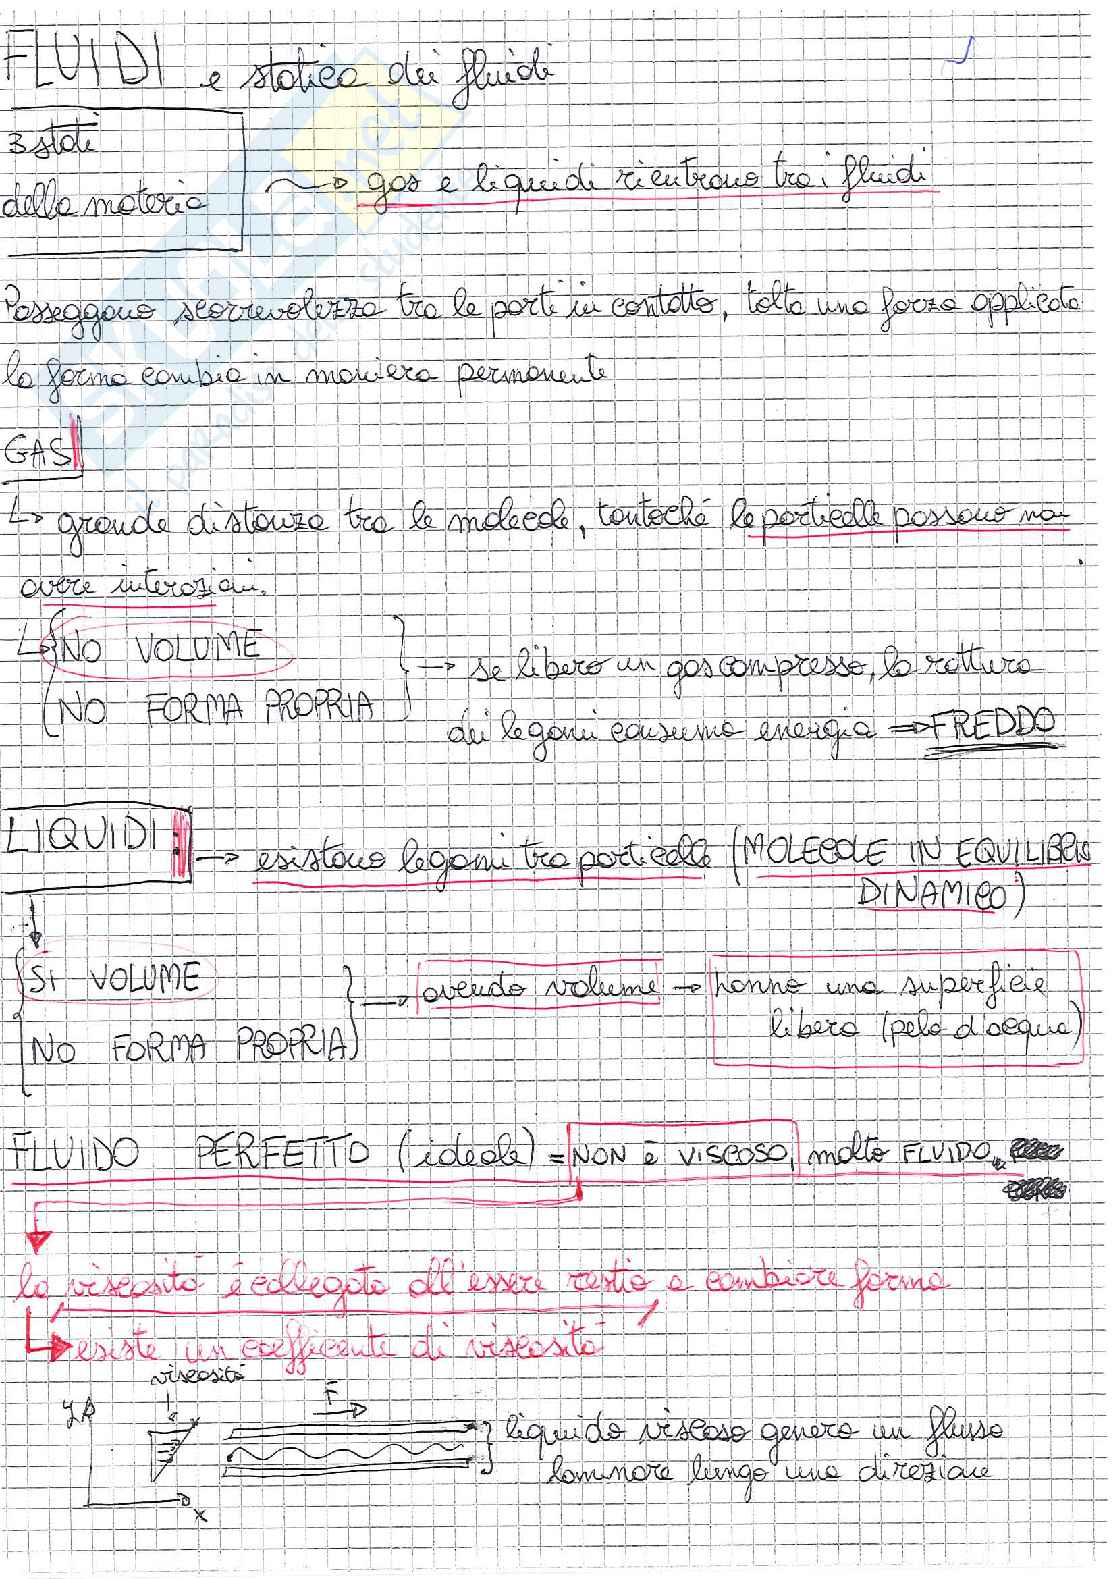 FLUIDI e statica dei fluidi
3 stati
della materia
gas e liquidi rientrano tra i fluidi
Posseggono scorrevolezza tra le parti in contatto, tolta una forza applicata
la forma cambia in maniera permanente
GAS
grande distanza tra le molecole, tantoché le particelle possono non
avere interazioni.
NO VOLUME
NO FORMA PROPRIA
se libero un gas compresso, la rottura
dei legami consuma energia ⇒ FREDDO
LIQUIDI:
esistono legami tra particelle (MOLECOLE IN EQUILIBRIO
DINAMICO)
SI VOLUME
NO FORMA PROPRIA
avendo volume → hanno una superficie
libera (pelo d'acqua)
FLUIDO PERFETTO (ideale) = NON è VISCOSO, molto FLUIDO
la viscosità é collegata all'essere restio a cambiare forma
esiste un coefficente di viscosità
viscosità
F
y
x
liquido viscoso genera un flusso
laminare lungo una direzione